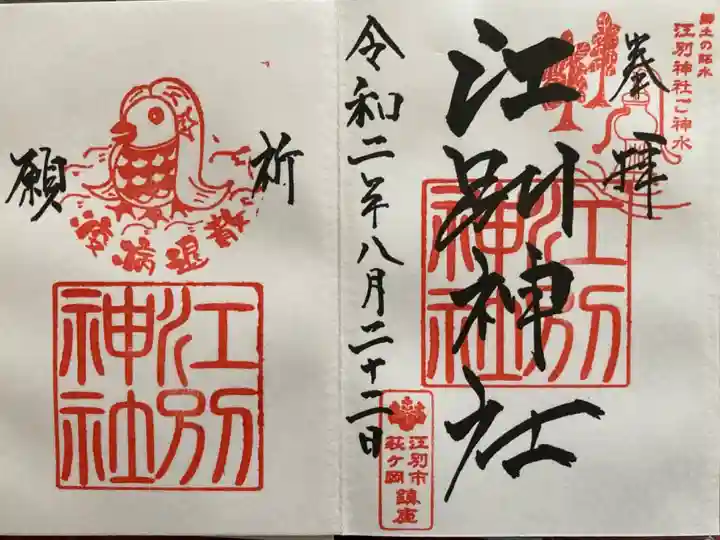 江別神社ご神水
奉拝
江別神社
江別
神社
令和二年八月二十二日
江別市
萩ヶ岡
鎮座
祈
願
疫病退散
江別
神社